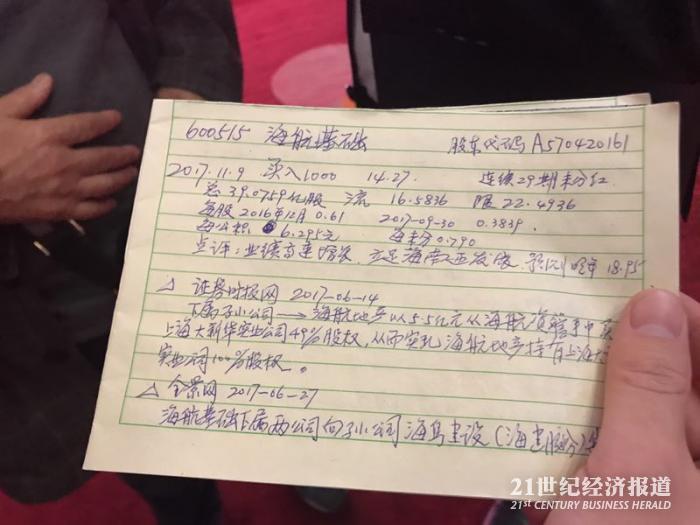 600515 海航基础 股东代码 A570420161
2017.11.9 买入1000 14.27. 连续29期未分红
总 39.0759亿股 流 16.5836 限 22.4936
每股 2016年12月 0.61 2017-09-30 0.3839.
每公积 6.295元 每未分 0.790
点评:业绩高速增长 立足海南工业发展 预测 18.95
△ 证券时报网 2017-06-14
下属子公司→海航地产以5.5亿元从海航资管手中
上海大新华实业公司49%股权,从而实现海航地产持有上海大
实业公司100%股权。
△ 全景网 2017-06-27
海航基础下属两公司向子公司海岛建设(海建股份)
21世纪经济报道
21ST CENTURY BUSINESS HERALD